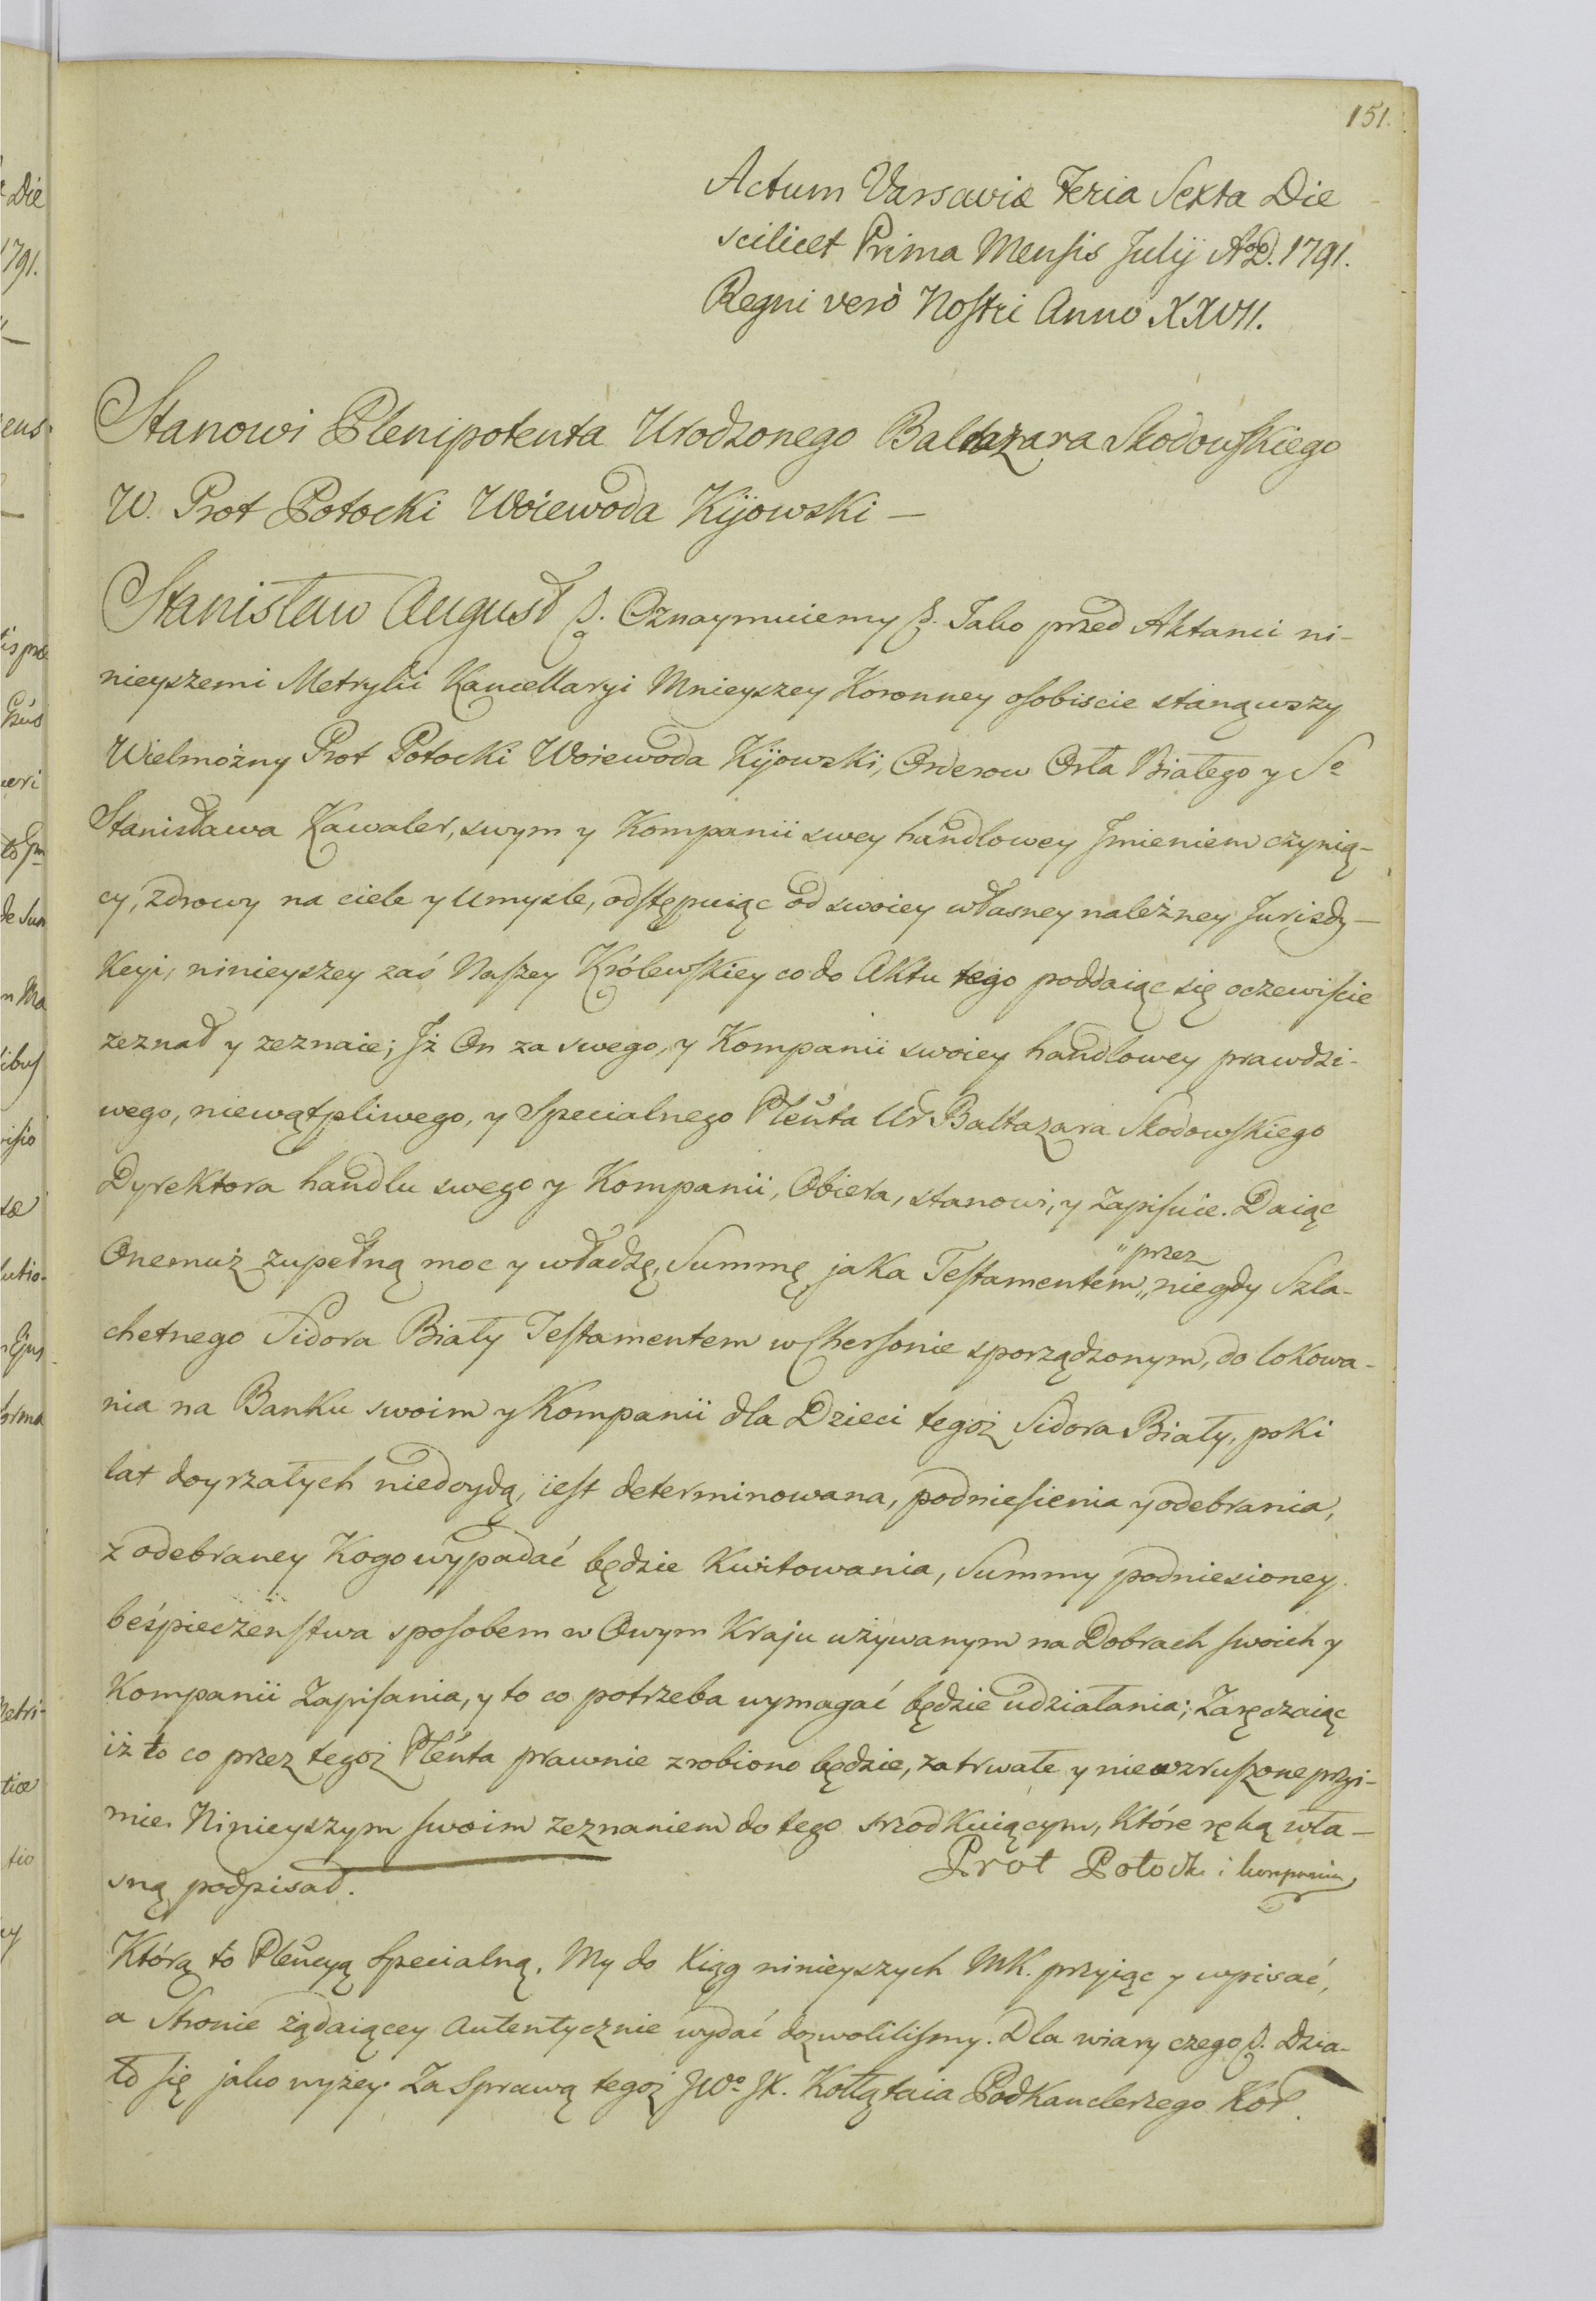 151.
Actum Varsaviæ Feria Sexta Die
scilicet Prima Mensis Julij AoD. 1791.
Regni verò Nostri Anno XXVII.
Stanowi Plenipotenta Urodzonego Baltazara Skodowskiego
W. Prot Potocki Woiewoda Kijowski —
Stanisław August p. Oznaymuiemy p. Jako przed Aktami ni-
nieyszemi Metryki Kancellaryi Mnieyszey Koronney osobiscie stanąwszy
Wielmożny Prot Potocki Woiewoda Kijowski, Orderow Orła Białego y So
Stanisława Kawaler, swym y Kompanii swey handlowey Jmieniem czynią-
cy, zdrowy na ciele y umysle, odstępuiąc od swoiey własney należney Jurisdy-
kcyi, ninieyszey zaś Naszey Królewskiey co do Aktu tego poddaiąc się oczewiscie
zeznał y zeznaie; Jż On za swego, y Kompanii swoiey handlowey prawdzi-
wego, niewątpliwego, y Specialnego Plenta Ur Baltazara Skodowskiego
Dyrektora handlu swego y Kompanii, Obiera, stanowi, y Zapisuie. Daiąc
Onemuż zupełną moc y władzę, Summę jaka Testamentem „przez niegdy Szla-
chetnego Sidora Biały Testamentem w Chersonie sporządzonym, do lokowa-
nia na Banku swoim y Kompanii dla Dzieci tegoż Sidora Biały, poki
lat doyrzałych niedoydą, iest determinowana, podniesienia y odebrania,
z odebraney Kogo wypadać będzie Kwitowania, Summy podniesioney
beśpieczenstwa sposobem w Owym Kraju używanym na Dobrach swoich y
Kompanii Zapisania, y to co potrzeba wymagać będzie udziałania; Zaręczaiąc
iż to co przez tegoż Plenta prawnie zrobiono będzie, za trwałe y niewzruszone przyi-
mie. Ninieyszym swoim zeznaniem do tego srzodkuiącym, które ręką wła-
sną podpisał.
Prot Potocki i kompania
Którą to Plencyą Specialną, My do Xiąg ninieyszych MK. przyiąc y wpisać,
a Stronie żądaiącey Autentycznie wydać dozwolilismy. Dla wiary czego p. Dzia-
ło się jako wyżey. Za Sprawą tegoż JWo JX. Kołłątaia PodKanclerzego Kor.